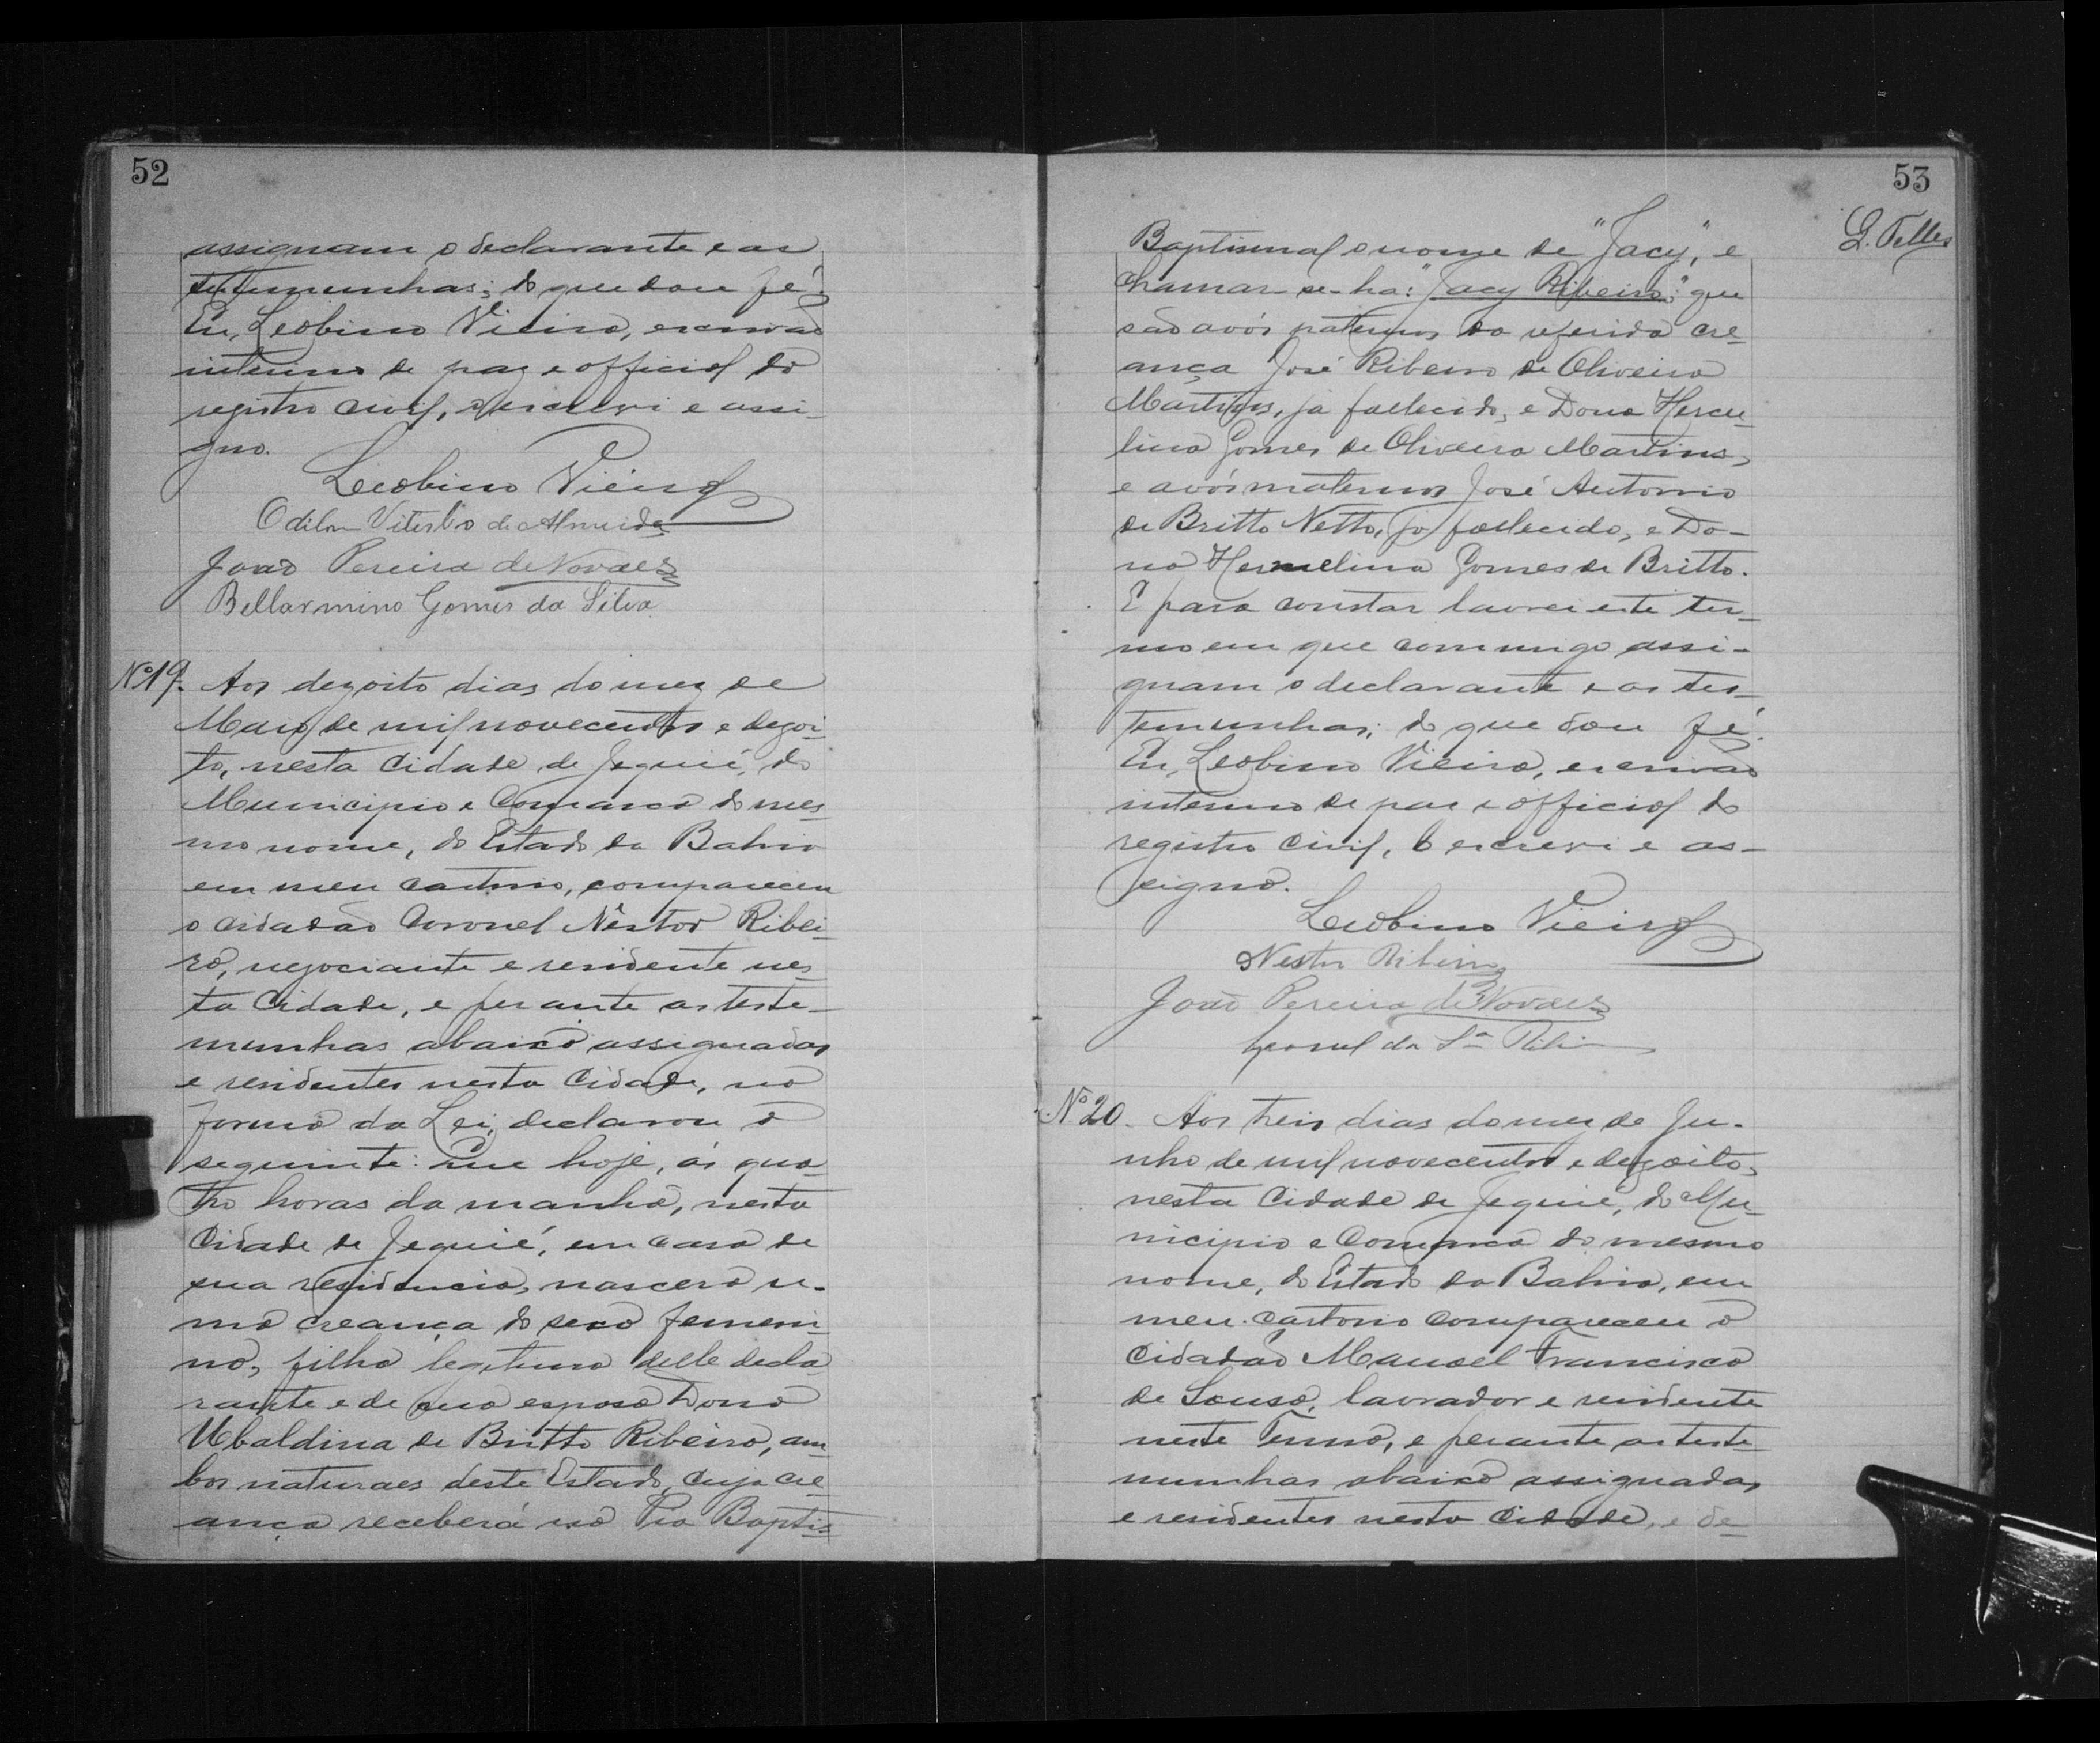 52
assignam o declarante e as
testemunhas; do que dou fé.
Eu, Leobino Vieira, escrivão
interino de paz e official do
registro civil, o escrevi e assi-
gno.
Leobino Vieira
Odilon Viterbo de Almeida
João Pereira de Novaes
Bellarmino Gomes da Silva
Nº19. Aos dezoito dias do mez de
Maio de mil novecentos e dezoi-
to, nesta Cidade de Jequié, do
Municipio e Comarca do mes-
mo nome, do Estado da Bahia
em meu cartorio, compareceu
o cidadão Coronel Nestor Ribei-
ro, negociante e residente nes-
ta Cidade, e perante as teste-
munhas abaixo assignadas
e residentes nesta Cidade, na
forma da Lei, declarou o
seguinte: Que hoje, ás qua-
tro horas da manhã, nesta
Cidade de Jequié, em casa de
sua residencia, nascera u-
ma creança do sexo femeni-
no, filha legitima delle decla-
rante e de sua esposa Dona
Ubaldina de Britto Ribeiro, am-
bos naturaes deste Estado, cuja cre-
ança receberá na Pia Baptis-
53
G. Telles
Baptismal o nome de "Jacy", e
chamar-se-ha: "Jacy Ribeiro;" que
são avós paternos da referida cre-
ança José Ribeiro de Oliveira
Martins, já fallecido, e Dona Hercu-
lina Gomes de Oliveira Martins,
e avós maternos José Antonio
de Britto Netto, já fallecido, e Do-
na Hermelina Gomes de Britto.
E para constar lavrei este ter-
mo em que commigo assi-
gnam o declarante e as tes-
temunhas; do que dou fé.
Eu, Leobino Vieira, escrivão
interino de paz e official do
registro civil, o escrevi e as-
signo.
Leobino Vieira
Nestor Ribeiro
João Pereira de Novaes
da Sª
Nº20. Aos treis dias do mez de Ju-
nho de mil novecentos e dezoito,
nesta Cidade de Jequié, do Mu-
nicipio e Comarca do mesmo
nome, do Estado da Bahia, em
meu cartorio compareceu o
cidadão Manoel Francisco
de Sousa, lavrador e residente
neste Termo, e perante as teste-
munhas abaixo assignadas
e residentes nesta Cidade, e de-